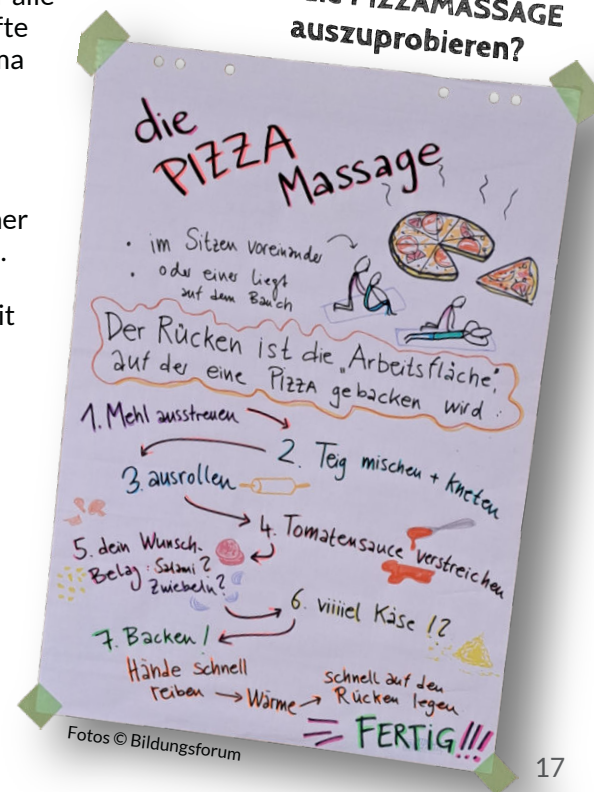 alle
fte
ma
PIZZAMASSAGE
auszuprobieren?
ner
.
it
die
PIZZA
Massage
• im Sitzen voreinander
• oder einer liegt
auf dem Bauch
Der Rücken ist die „Arbeitsfläche“,
auf der eine Pizza gebacken wird.
1. Mehl ausstreuen
2. Teig mischen + kneten
3. ausrollen
4. Tomatensauce verstreichen
5. dein Wunsch-
Belag: Salami?
Zwiebeln?
6. viiiiel Käse !?
7. Backen!
Hände schnell
reiben → Wärme →
schnell auf den
Rücken legen
= FERTIG!!!
Fotos © Bildungsforum
17